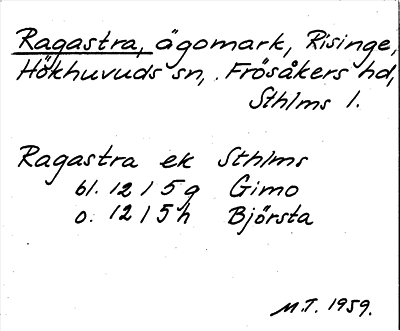 Ragastra, ägomark, Risinge,
Hökhuvuds sn, Frösåkers hd,
Sthlms l.
Ragastra ek Sthlms
bl. 12 I 5 g Gimo
o. 12 I 5 h Björsta
M.T. 1959.